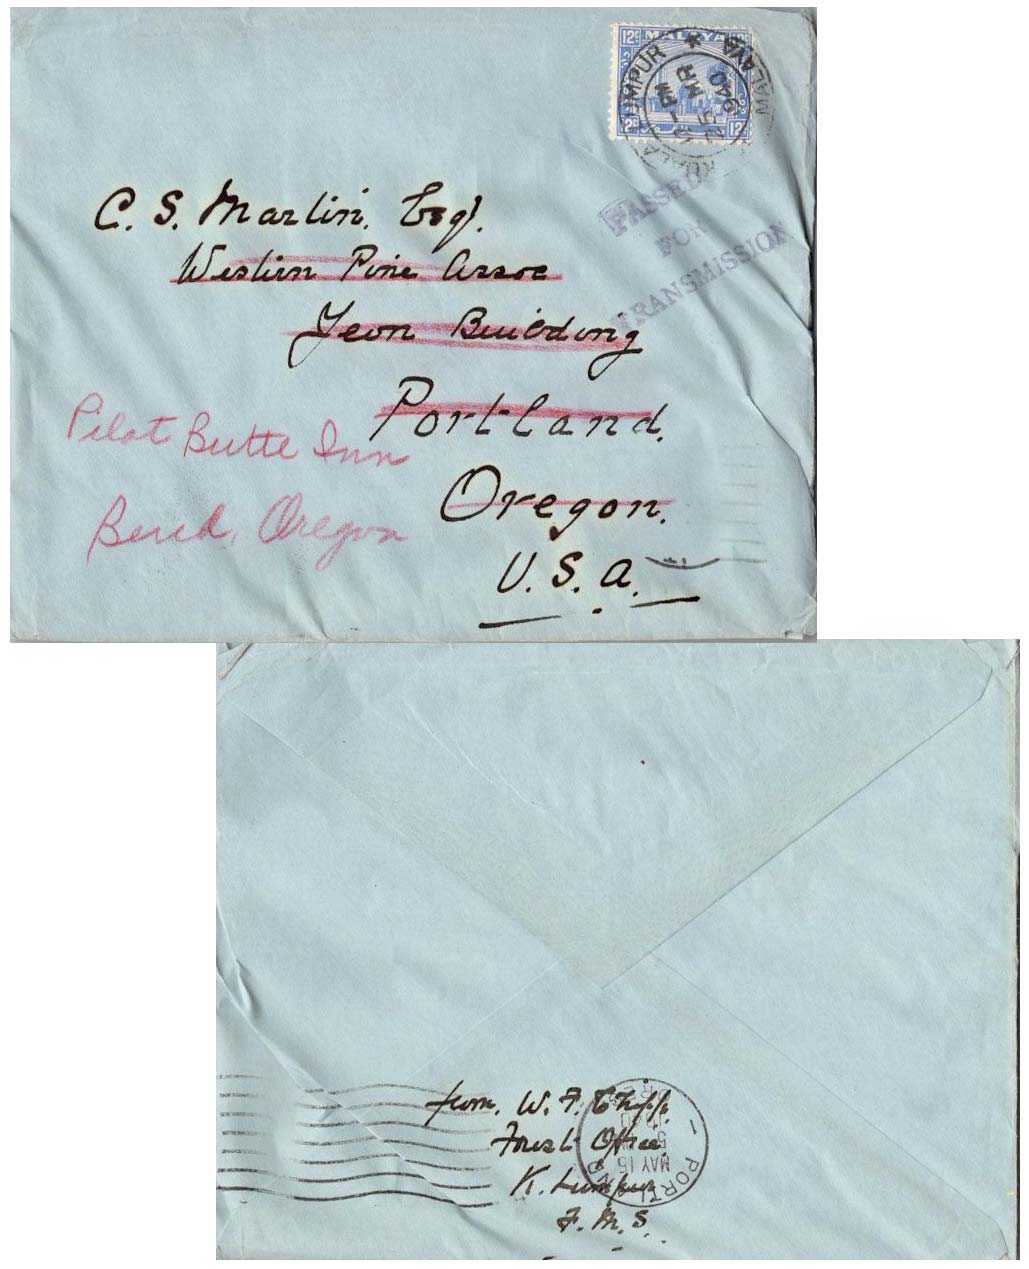 12c MALAYA
12c 12
KUALA LUMPUR ★ MALAYA
-PM
25 MR
1940
PASSED
FOR
TRANSMISSION
C. S. Martin, Esq.
Western Pine Assoc
Yeon Building
Portland,
Oregon,
U.S.A.
Pilot Butte Inn
Bend, Oregon
from, W. F. Chipp.
Forest Office
K. Lumpur
F.M.S.
PORTLAND
MAY 15
5
ORE